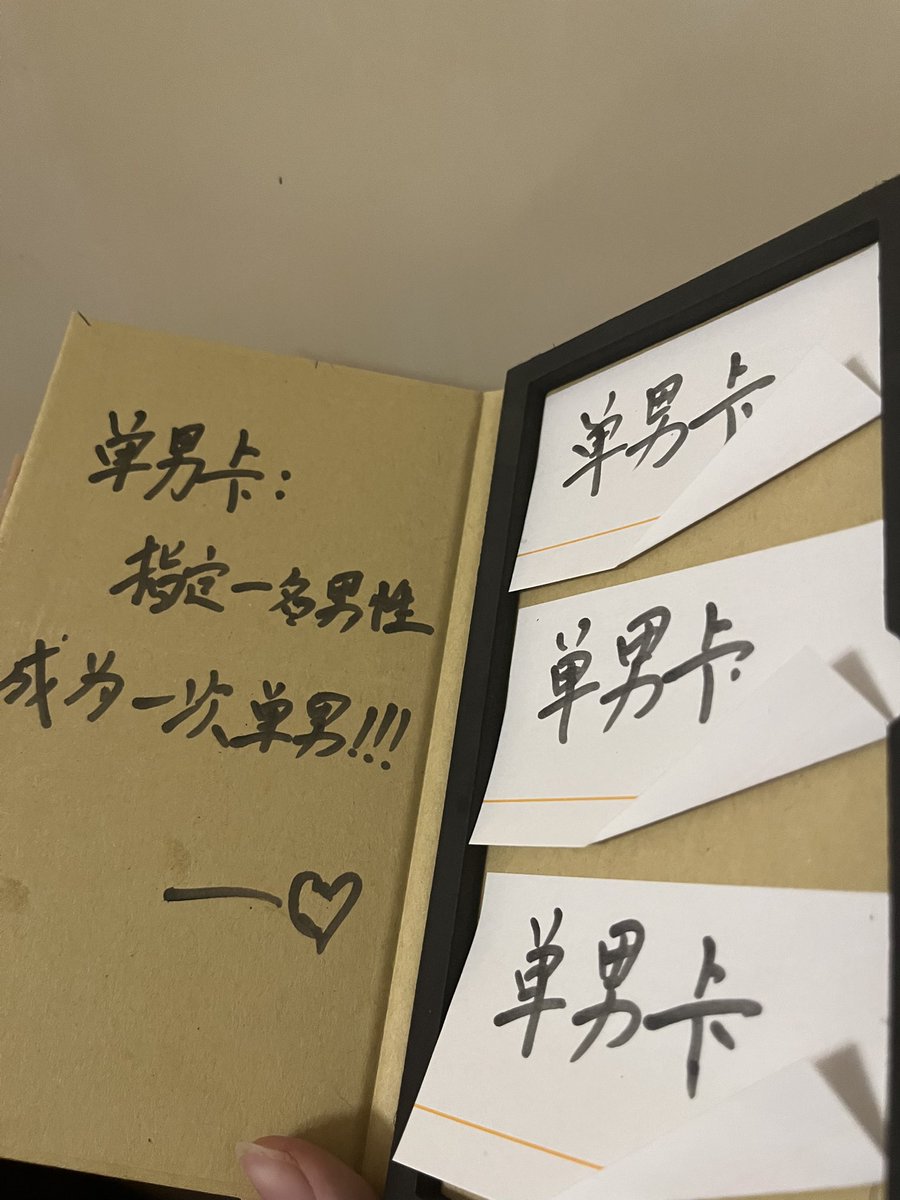 单男卡：
指定一名男性
成为一次单男!!!
单男卡
单男卡
单男卡